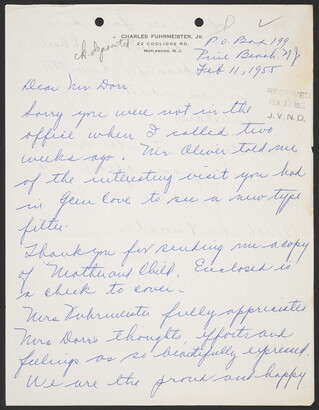 ck deposited
CHARLES FUHRMEISTER, JR.
22 COOLIDGE RD.
MAPLEWOOD, N. J.
P O Box 199
Pine Beach NJ
Feb 11, 1955
RECEIVED
FEB
J.V.N.D.
Dear Mr Dorr
Sorry you were not in the
office when I called two
weeks ago. Mr. Oliver told me
of the interesting visit you had
in Glen Cove to see a new type
filter.
Thank you for sending me a copy
of "Mother and Child. Enclosed is
a check to cover.
Mrs Fuhrmeister fully appreciates
Mrs Dorr's thoughts, efforts and
feelings as so beautifully expressed.
We are the proud and happy